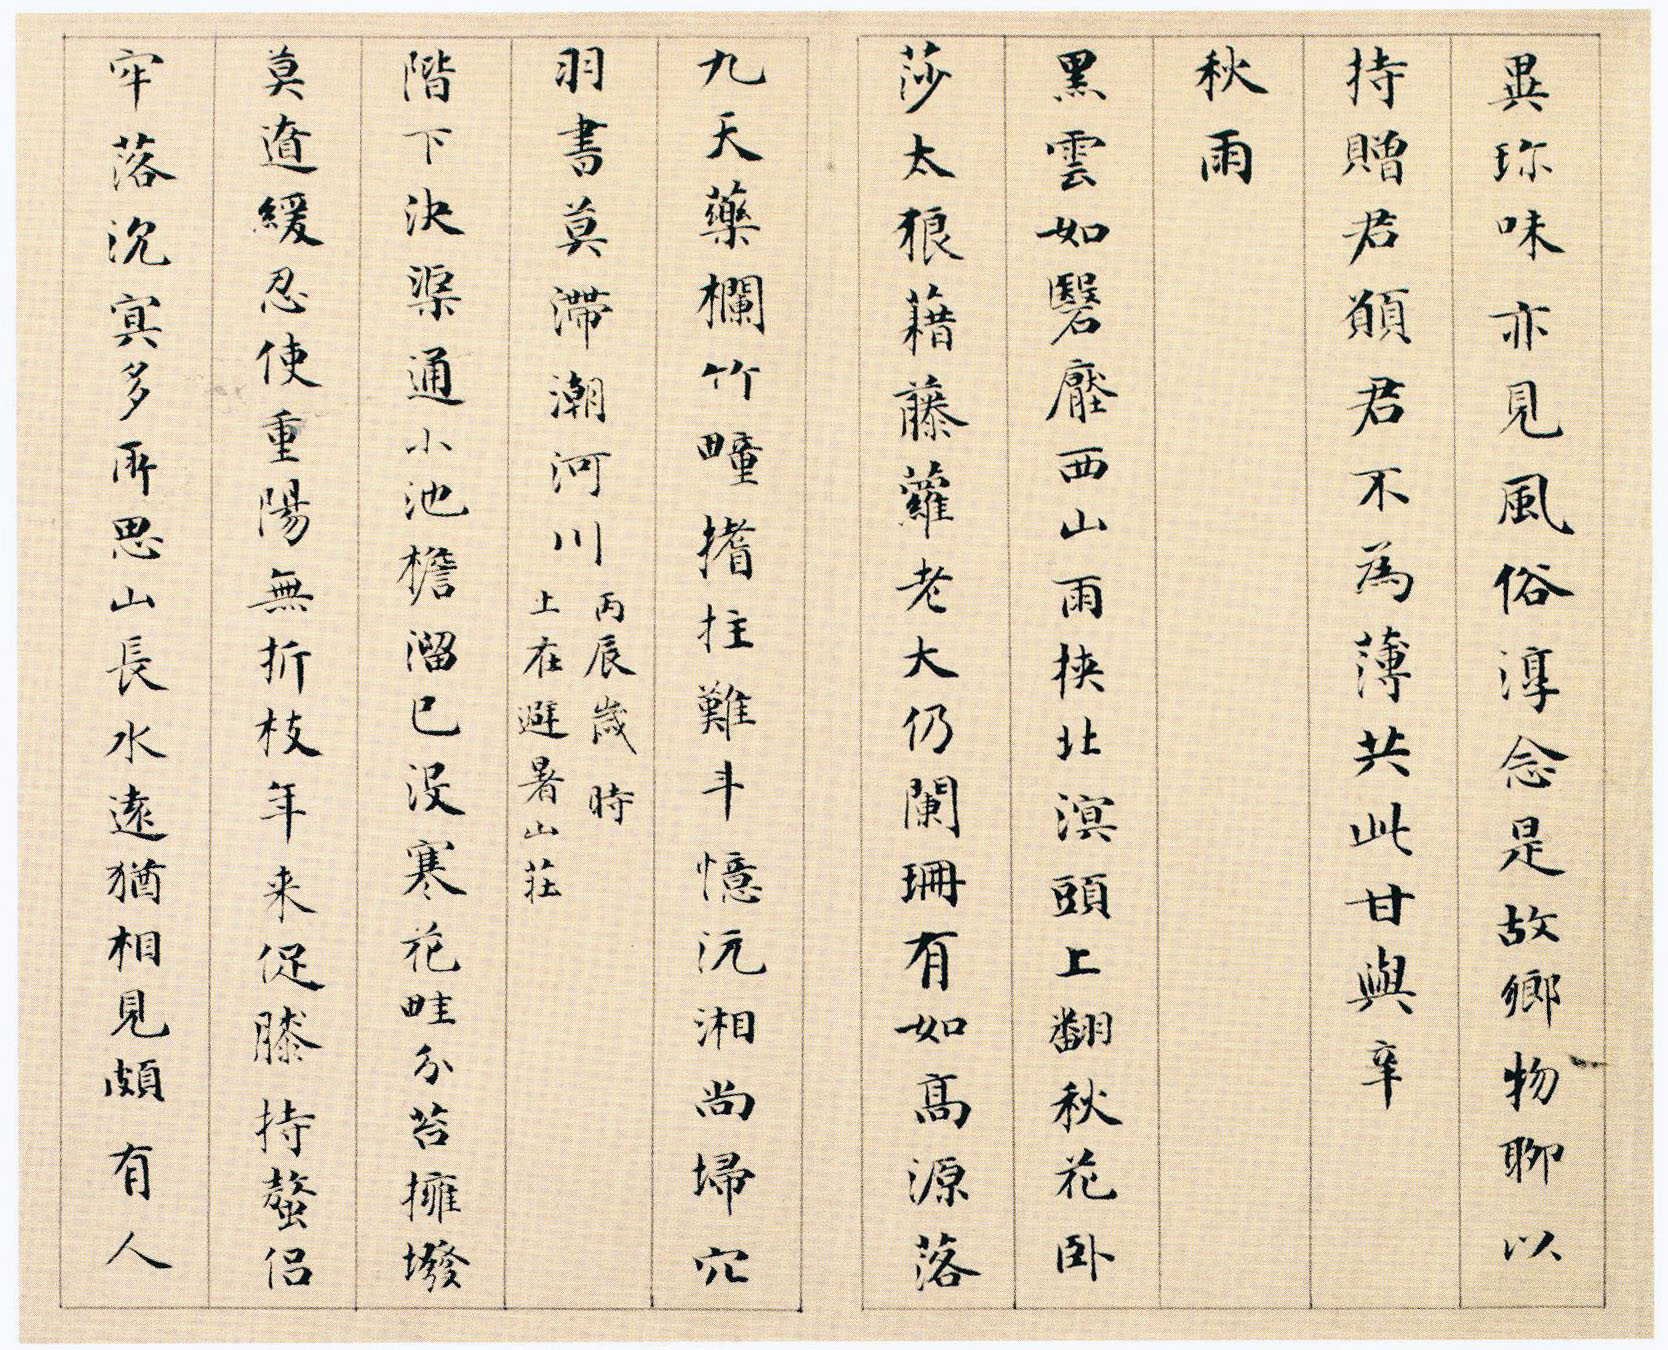 異珎味亦見風俗淳念是故鄉物聊以
持贈君願君不為薄共此甘與辛
秋雨
黑雲如翳壓西山雨挾北溟頭上翻秋花卧
莎太狼藉藤蘿老大仍闌珊有如高源落
九天藥欄竹疃搘拄難斗憶沅湘尚埽穴
羽書莫滯潮河川
丙辰歲時
上在避暑山莊
階下決渠通小池檐溜已沒寒花畦分苔擁墢
莫遒緩忍使重陽無折枝年来促膝持螯侣
牢落沉冥多所思山長水遠猶相見頗有人